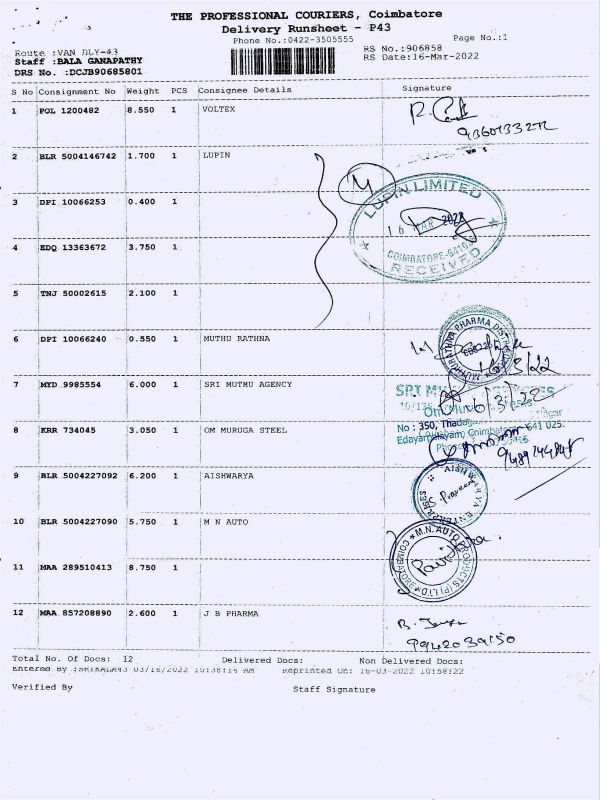 THE PROFESSIONAL COURIERS, Coimbatore
Delivery Runsheet - P43
Phone No.:0422-3505555 Page No.:1
Route :VAN DLY-43 RS No.:906858
Staff :BALA GANAPATHY RS Date:16-Mar-2022
DRS No. :DCJB90685801
S No Consignment No Weight PCS Consignee Details Signature
1 POL 1200482 8.550 1 VOLTEX
2 BLR 5004146742 1.700 1 LUPIN
LUPIN LIMITED
3 DPI 10066253 0.400 1
16 MAR 2022
4 EDQ 13363672 3.750 1
RECEIVED
5 TNJ 50002615 2.100 1
6 DPI 10066240 0.550 1 MUTHU RATHNA
16/3/22
7 MYD 9985554 6.000 1 SRI MUTHU AGENCY
8 KRR 734045 3.050 1 OM MURUGA STEEL
No : 350,
9 BLR 5004227092 6.200 1 AISHWARYA
10 BLR 5004227090 5.750 1 M N AUTO
M.N. AUTO PRODUCTS (P) LTD
COIMBATORE
11 MAA 289510413 8.750 1
12 MAA 857208890 2.600 1 J B PHARMA
9942039150
Total No. Of Docs: 12 Delivered Docs: Non Delivered Docs:
Entered By :SRIKALA43 03/16/2022 10:38:14 AM Reprinted On: 16-03-2022 10:58:22
Verified By Staff Signature